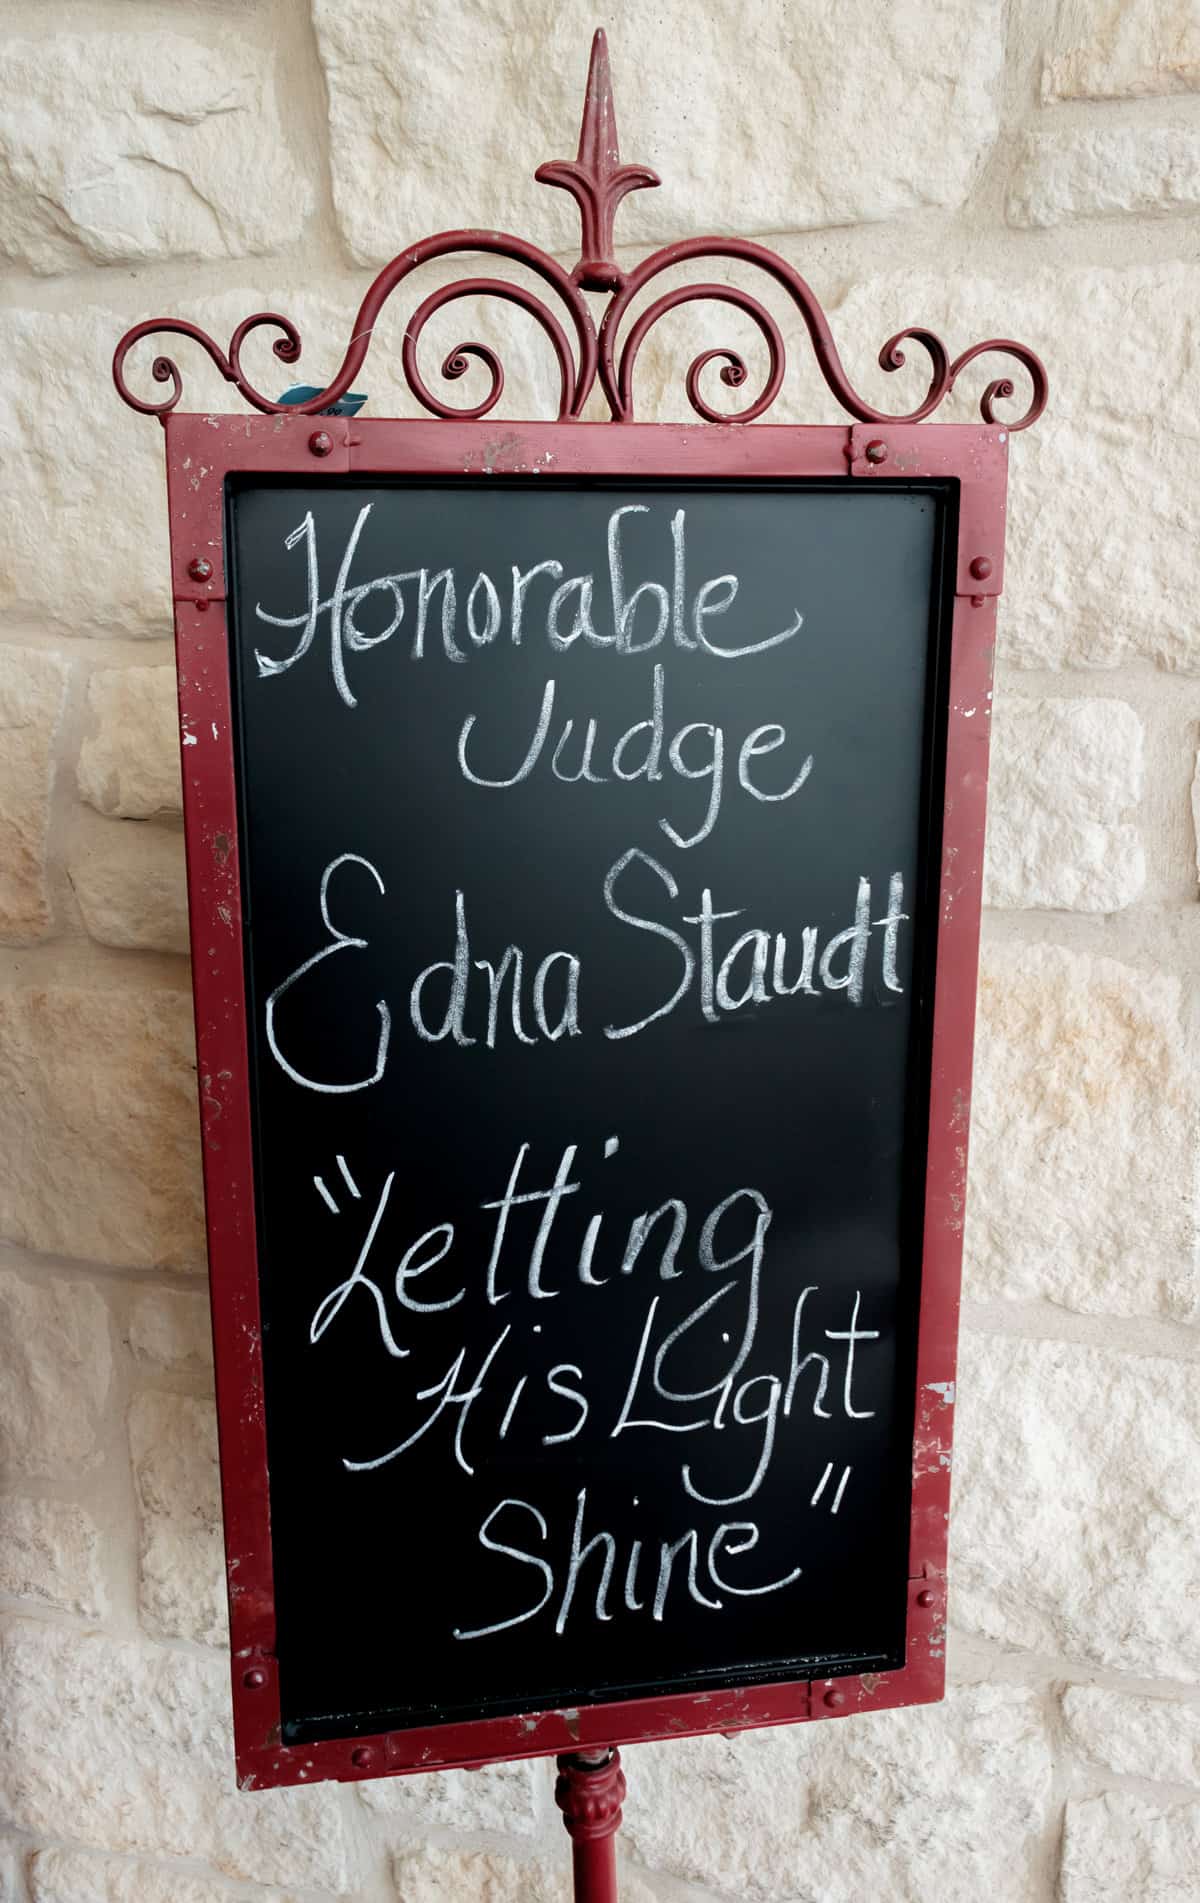 Honorable
Judge
Edna Staudt
"Letting
His Light
Shine"